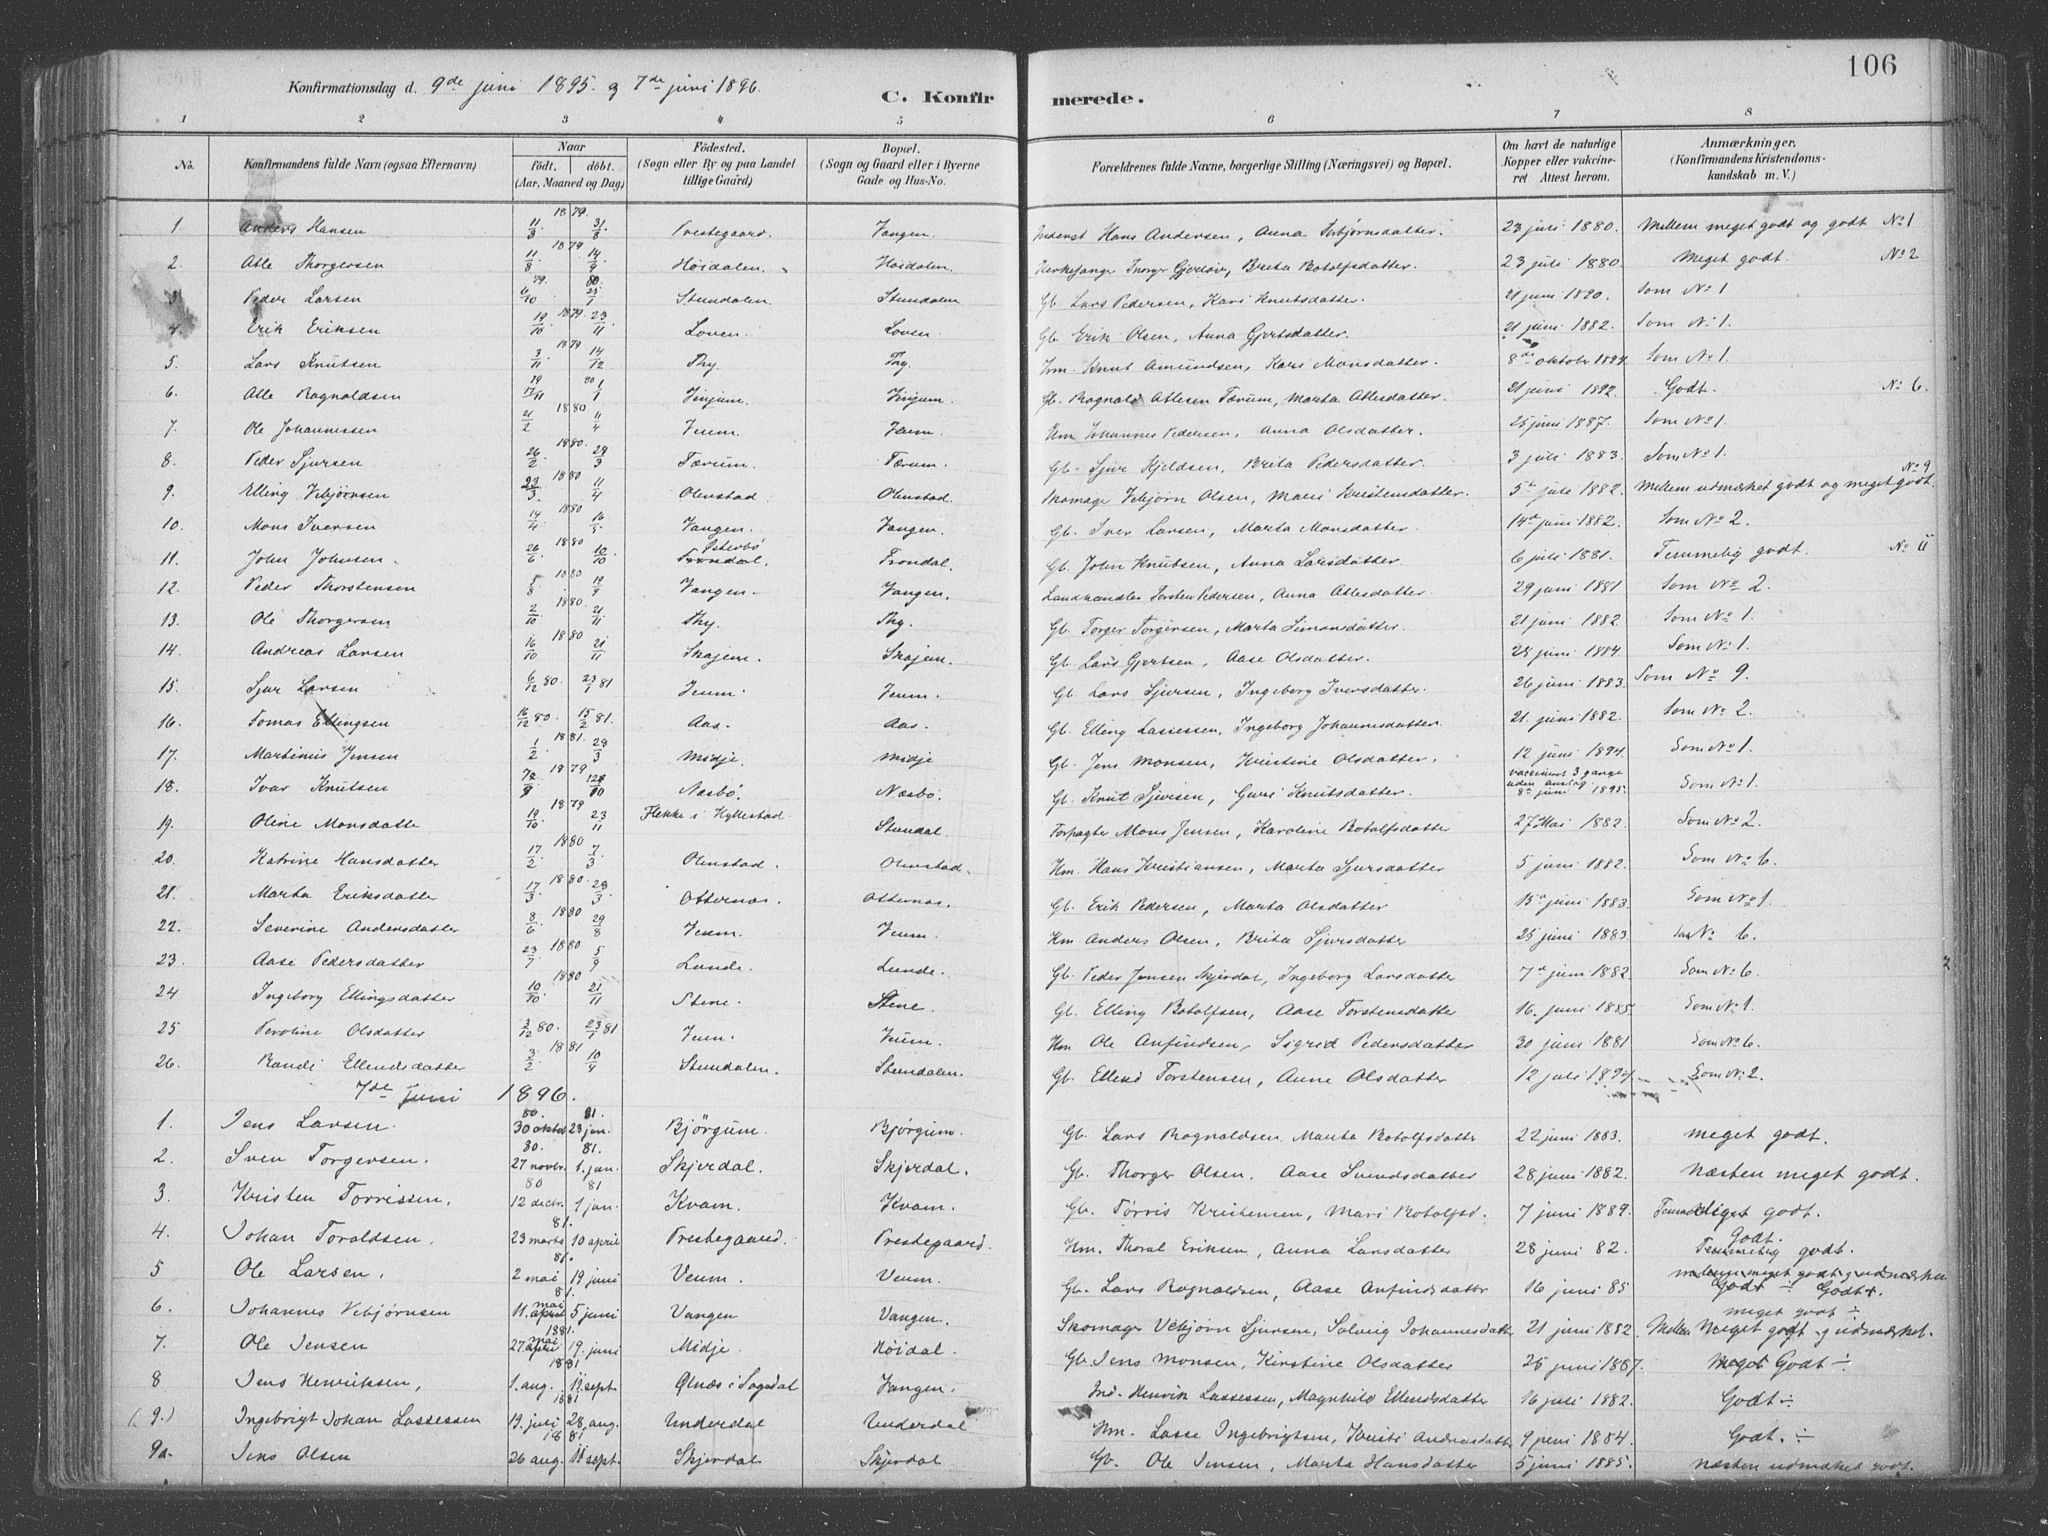 106
Konfirmationsdag d. 9de juni 1895. og 7de juni 1896.
C. Konfirmerede.
1 2 3 4 5 6 7 8
No. Konfirmandens fulde Navn (ogsaa Efternavn) Naar født. døbt. (Aar, Maaned og Dag) Fødested. (Sogn eller By og paa Landet tillige Gaard) Bopæl. (Sogn og Gaard eller i Byerne Gade og Hus-No. Forældrenes fulde Navne, borgerlige Stilling (Næringsvei) og Bopæl. Om havt de naturlige Kopper eller vaccineret Attest herom. Anmærkninger. (Konfirmandens Kristendomskundskab m. V.)
1. Anders Hansen 11/8 1879. 31/8 Prestegaard. Vangen. Inderst Hans Andersen, Anna Torbjørnsdatter. 23 juli 1880. Mellem meget godt og godt No 1
2. Atle Thorgersen 11/8 1879 14/9 Høidalen. Høidalen. Brita Botolfsdatter. 23 juli 1880. Meget godt. No 2
3. Peder Larsen 6/10 79. 25/1 80. Stundalen. Stundalen Gb. Lars Pedersen, Kari Knutsdatter. 21 juni Som No 1
4. Erik Eriksen 19/10 1879. 23/11 Loven. Loven Gb. Erik Olsen, Anna Gjertsdatter. 21 juni 1882. Som No 1.
5. Lars Knutsen 3/11 1879 14/12 Thy. Thy. Hm. Knut Amundsen, Kari Monsdatter. 8de oktober 1894. Som No 1.
6. Atle Ragnaldsen 17/11 79 1/1 80 Vinjum. Vinjum. Gb. Ragnald Atlesen Tærum, Marta Atlesdatter. 21 juni 1882. Godt. No 6.
7. Ole Johannessen 21/2 1880 11/4 Veum. Veum. Hm Johannes Pedersen, Anna Olsdatter. 25 juni 1887. Som No 1.
8. Peder Sjursen 26/2 1880. 29/3 Tærum. Tærum. Gb. Sjur Kjeldsen, Brita Pedersdatter. 3 juli 1883. Som No 1.
9. Elling Vebjørnsen 23/3. 1880 11/4 Olmstad. Olmstad. Skomager Vebjørn Olsen, Mari Kristensdatter. 5te juli 1882. Mellem udmerket godt og meget godt. No 9
10. Mons Iversen 14/4 1880 16/5 Vangen. Vangen. Gb. Iver Larsen, Marta Monsdatter. 14de juni 1882. Som No 2.
11. John Johnsen. 26/6 1880 10/10 Østerbø Frondal. Gb. John Knutsen, Anna Larsdatter. 6 juli 1881. Temmelig godt. No 11
12. Peder Thorstensen 5/8 1880 19/9 Vangen. Vangen. Landhandler Torsten Pedersen, Anna Atlesdatter. 29 juni 1881 Som No 2.
13. Ole Thorgersen 2/10 1880. 21/11 Thy. Thy. Gb. Torger Torgersen, Marta Simonsdatter. 21 juni 1882 Som No 1.
14. Andreas Larsen 16/10 1880 21/11 Skajem. Skajem. Gb. Lars Gjertsen, Aase Olsdatter. 28 juni 1884. Som No 1.
15. Sjur Larsen 6/12 80. 23/1 81 Veum. Veum. Gb. Lars Sjursen, Ingeborg Iversdatter. 26 juni 1883. Som No 9.
16. Tomas Ellingsen 16/12 80. 15/2 81. Aas. Aas. Gb. Elling Lassessen, Ingeborg Johannesdatter 21. juni 1882. Som No 2.
17. Martinus Jensen 1/2 1881. 28/3 Midje. Midje Gb. Jens Monsen, Kristine Olsdatter. 12 juni 1894. Som No 1.
18. Ivar Knutsen 1879 Næsbø. Næsbø. Gb. Knut Sjursen, Guri Knutsdatter. vaccineret 3 gange uden anslag 8de juni 1895. Som No 1.
19. Oline Monsdatte 19/10 1879 23/11 Flekke i Hyllestad. Stundal. Forpagter Mons Jensen, Karoline Botolfsdatter 27 Mai 1882. Som No 2.
20. Katrine Hansdatter 17/2 1880 7/3 Olmstad. Olmstad. Hm. Hans Kristiansen, Marta Sjursdatter 5 juni 1882. Som No 6.
21. Marta Eriksdatte 17/3 1880. 28/3 Otternæs. Otternæs. Gb. Erik Pedersen, Marta Olsdatter 15de juni 1883. Som No 1.
22. Severine Andersdatter 8/6 1880 29/8 Veum. Veum. Hm Anders Olsen, Brita Sjursdatter 25 juni 1883. Som No 6.
23. Aase Pedersdatter 23/7 1880 5/9 Lunde. Lunde. Gb. Peder Jensen Skjerdal, Ingeborg Larsdatter 7de juni 1882. Som No 6.
24 Ingeborg Ellingsdatter 10/10 1880 21/11 Stene. Stene. Gb. Elling Botolfsen, Aase Torstensdatter 16. juni 1885. Som No 1.
25 Peroline Olsdatter 3/12 80. 23/1 81 Veum. Veum. Hm Ole Anfindsen, Sigrid Pedersdatter 30 juni 1881 Som No 6.
26. Randi Ellendsdatter 3/2 1881 10/4 Stundalen. Stundalen. Gb. Ellend Torstensen, Anne Olsdatter 12 juli 1894. Som No 2.
7de juni 1896.
1. Jens Larsen. 80. 30 oktob. 81. 23 jan. Bjørgum Bjørgum. Gb. Lars Ragnaldsen, Marita Botolfsdatter 22 juni 1883. meget godt.
2. Sven Torgersen. 80. 27 novbr. 81. 1. jan. Skjerdal. Skjerdal. Gb. Thorger Olsen. Aase Svendsdatter 28 juni 1882. næsten meget godt.
3. Kristen Torrissen. 80 12 decbr. 81 1 jan. Kvam. Kvam. Gb. Tørris Kristensen, Mari Botolfsd. 7 juni 1889. godt.
4. Johan Toraldsen. 81. 23 marts 10 april Prestegaard. Prestegaard. Hm. Thoral Eriksen, Anna Larsdatter 28 juni 82. Godt. Temmelig godt.
5 Ole Larsen. 81. 2 mai 19 juni Veum. Veum. Gb. Lars Ragnaldsen, Aase Anfindsdatter 16 juni 85 Godt ÷ Godt+.
6. Johannes Vebjørnsen 81. 11. mai april 5 juni Vangen Vangen. Skomager Vebjørn Sjursen, Solveig Johannesdatter 21 juni 1882. meget godt ÷ Mellem Meget godt og udmerket.
7. Ole Jensen 1881. 27. mai april 19. juni Midje Høidal. Gb. Jens Monsen, Kirstine Olsdatter 25 juni 1887. Meget Godt ÷
8 Jens Henriksen, 1881 1. aug. 11 sept. Ølnæs i Sogndal Vangen. Ind. Henrik Lassessen, Magnhild Ellendsdatter 16 juli 1882. Godt ÷
(9.) Ingebrigt Johan Lassessen 1881 19. juli 28 aug. Underdal Underdal Hm. Lasse Ingebrigtsen, Kristi Andreasdatter 9 juni 1884. Godt. ÷
9a. Jens Olsen 1881 26 aug. 18 sept. Skjerdal Skjerdal Gb. Ole Jensen, Marta Hansdatter 5 juni 1885. næsten udmerket godt.